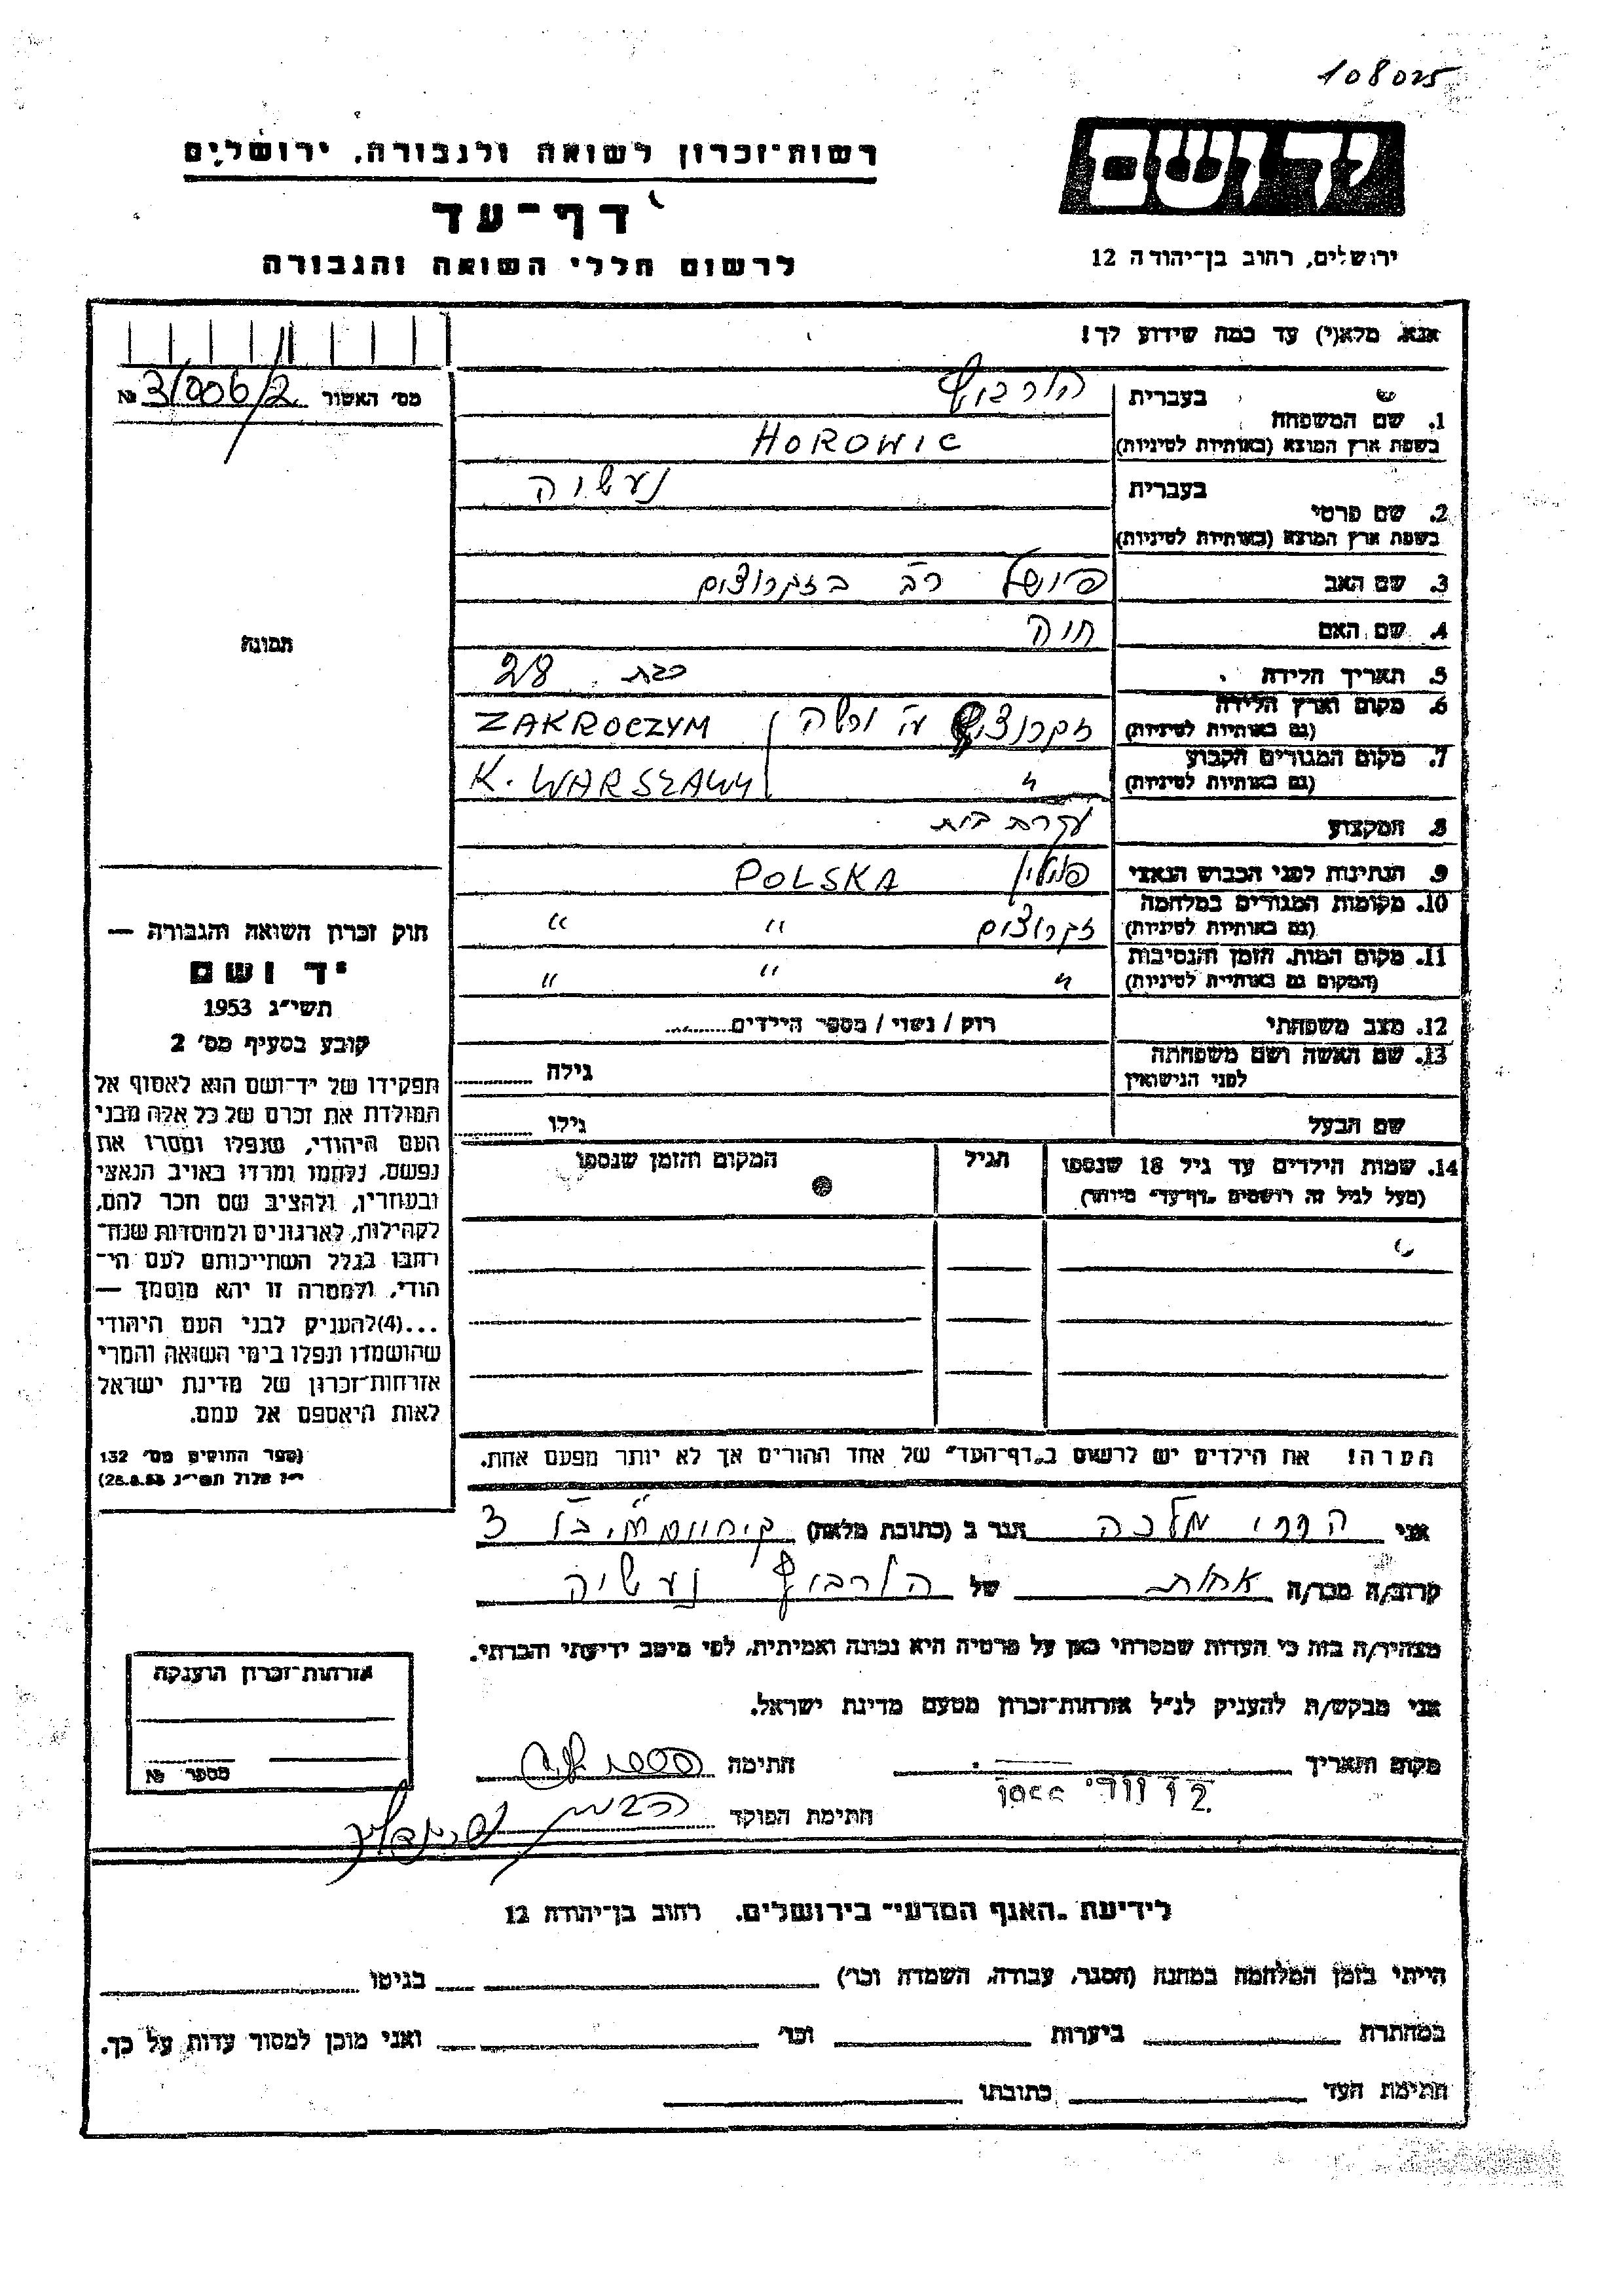 108025
יד ושם
ירושלים, רחוב בן־יהודה 12
רשות־זכרון לשואה ולגבורה, ירושלים
דף־עד
לרשום חללי השואה והגבורה
אנא, מלא(י) עד כמה שידוע לך!
מס׳ האשור 3/006/2 №
תמונה
חוק זכרון השואה והגבורה —
יד ושם
תשי״ג 1953
קובע בסעיף מס׳ 2
תפקידו של יד־ושם הוא לאסוף אל
המולדת את זכרם של כל אלה מבני
העם היהודי, שנפלו ומסרו את
נפשם, נלחמו ומרדו באויב הנאצי
ובעוזריו, ולהציב שם וזכר להם,
לקהילות, לארגונים ולמוסדות שנח־
רבו בגלל השתייכותם לעם הי־
הודי, ולמטרה זו יהא מוסמך —
...(4)להעניק לבני העם היהודי
שהושמדו ונפלו בימי השואה והמרי
אזרחות־זכרון של מדינת ישראל
לאות היאספם אל עמם.
(ספר החוקים מס׳ 132
י״ז אלול תשי״ג 28.8.53)
1. שם המשפחה בעברית הורביץ
בשפת ארץ המוצא (באותיות לטיניות) HOROWIC
2. שם פרטי בעברית
בשפת ארץ המוצא (באותיות לטיניות)
3. שם האב רב בזקרוצים
4. שם האם חיה
5. תאריך הלידה כבת 28
6. מקום וארץ הלידה (גם באותיות לטיניות) ע״י ורשה ZAKROCZYM
7. מקום המגורים הקבוע (גם באותיות לטיניות) " K. WARSZAWY
8. המקצוע עקרת בית
9. הנתינות לפני הכבוש הנאצי פולין POLSKA
10. מקומות המגורים במלחמה (גם באותיות לטיניות) זקרוצים " "
11. מקום המות, הזמן והנסיבות (המקום גם באותיות לטיניות) " " "
12. מצב משפחתי רוק / נשוי / מספר הילדים
13. שם האשה ושם משפחתה לפני הנישואין גילה
שם הבעל גילו
14. שמות הילדים עד גיל 18 שנספו הגיל המקום והזמן שנספו
(מעל לגיל זה רושמים „דף־עד״ מיוחד)
הערה! את הילדים יש לרשום ב„דף־העד״ של אחד ההורים אך לא יותר מפעם אחת.
אני הררי מלכה הגר ב (כתובת מלאה) 3
קרוב/ה מכר/ה אחות של הורביץ
מצהיר/ה בזה כי העדות שמסרתי כאן על פרטיה היא נכונה ואמיתית, לפי מיטב ידיעתי והכרתי.
אני מבקש/ת להעניק לנ״ל אזרחות־זכרון מטעם מדינת ישראל.
מקום ותאריך חתימה
חתימת הפוקד
אזרחות־זכרון הוענקה
מספר №
לידיעת „האגף המדעי״ בירושלים. רחוב בן־יהודה 12
הייתי בזמן המלחמה במחנה (הסגר, עבודה, השמדה וכו׳) בגיטו
במחתרת ביערות וכו׳ ואני מוכן למסור עדות על כך.
חתימת העד כתובתו